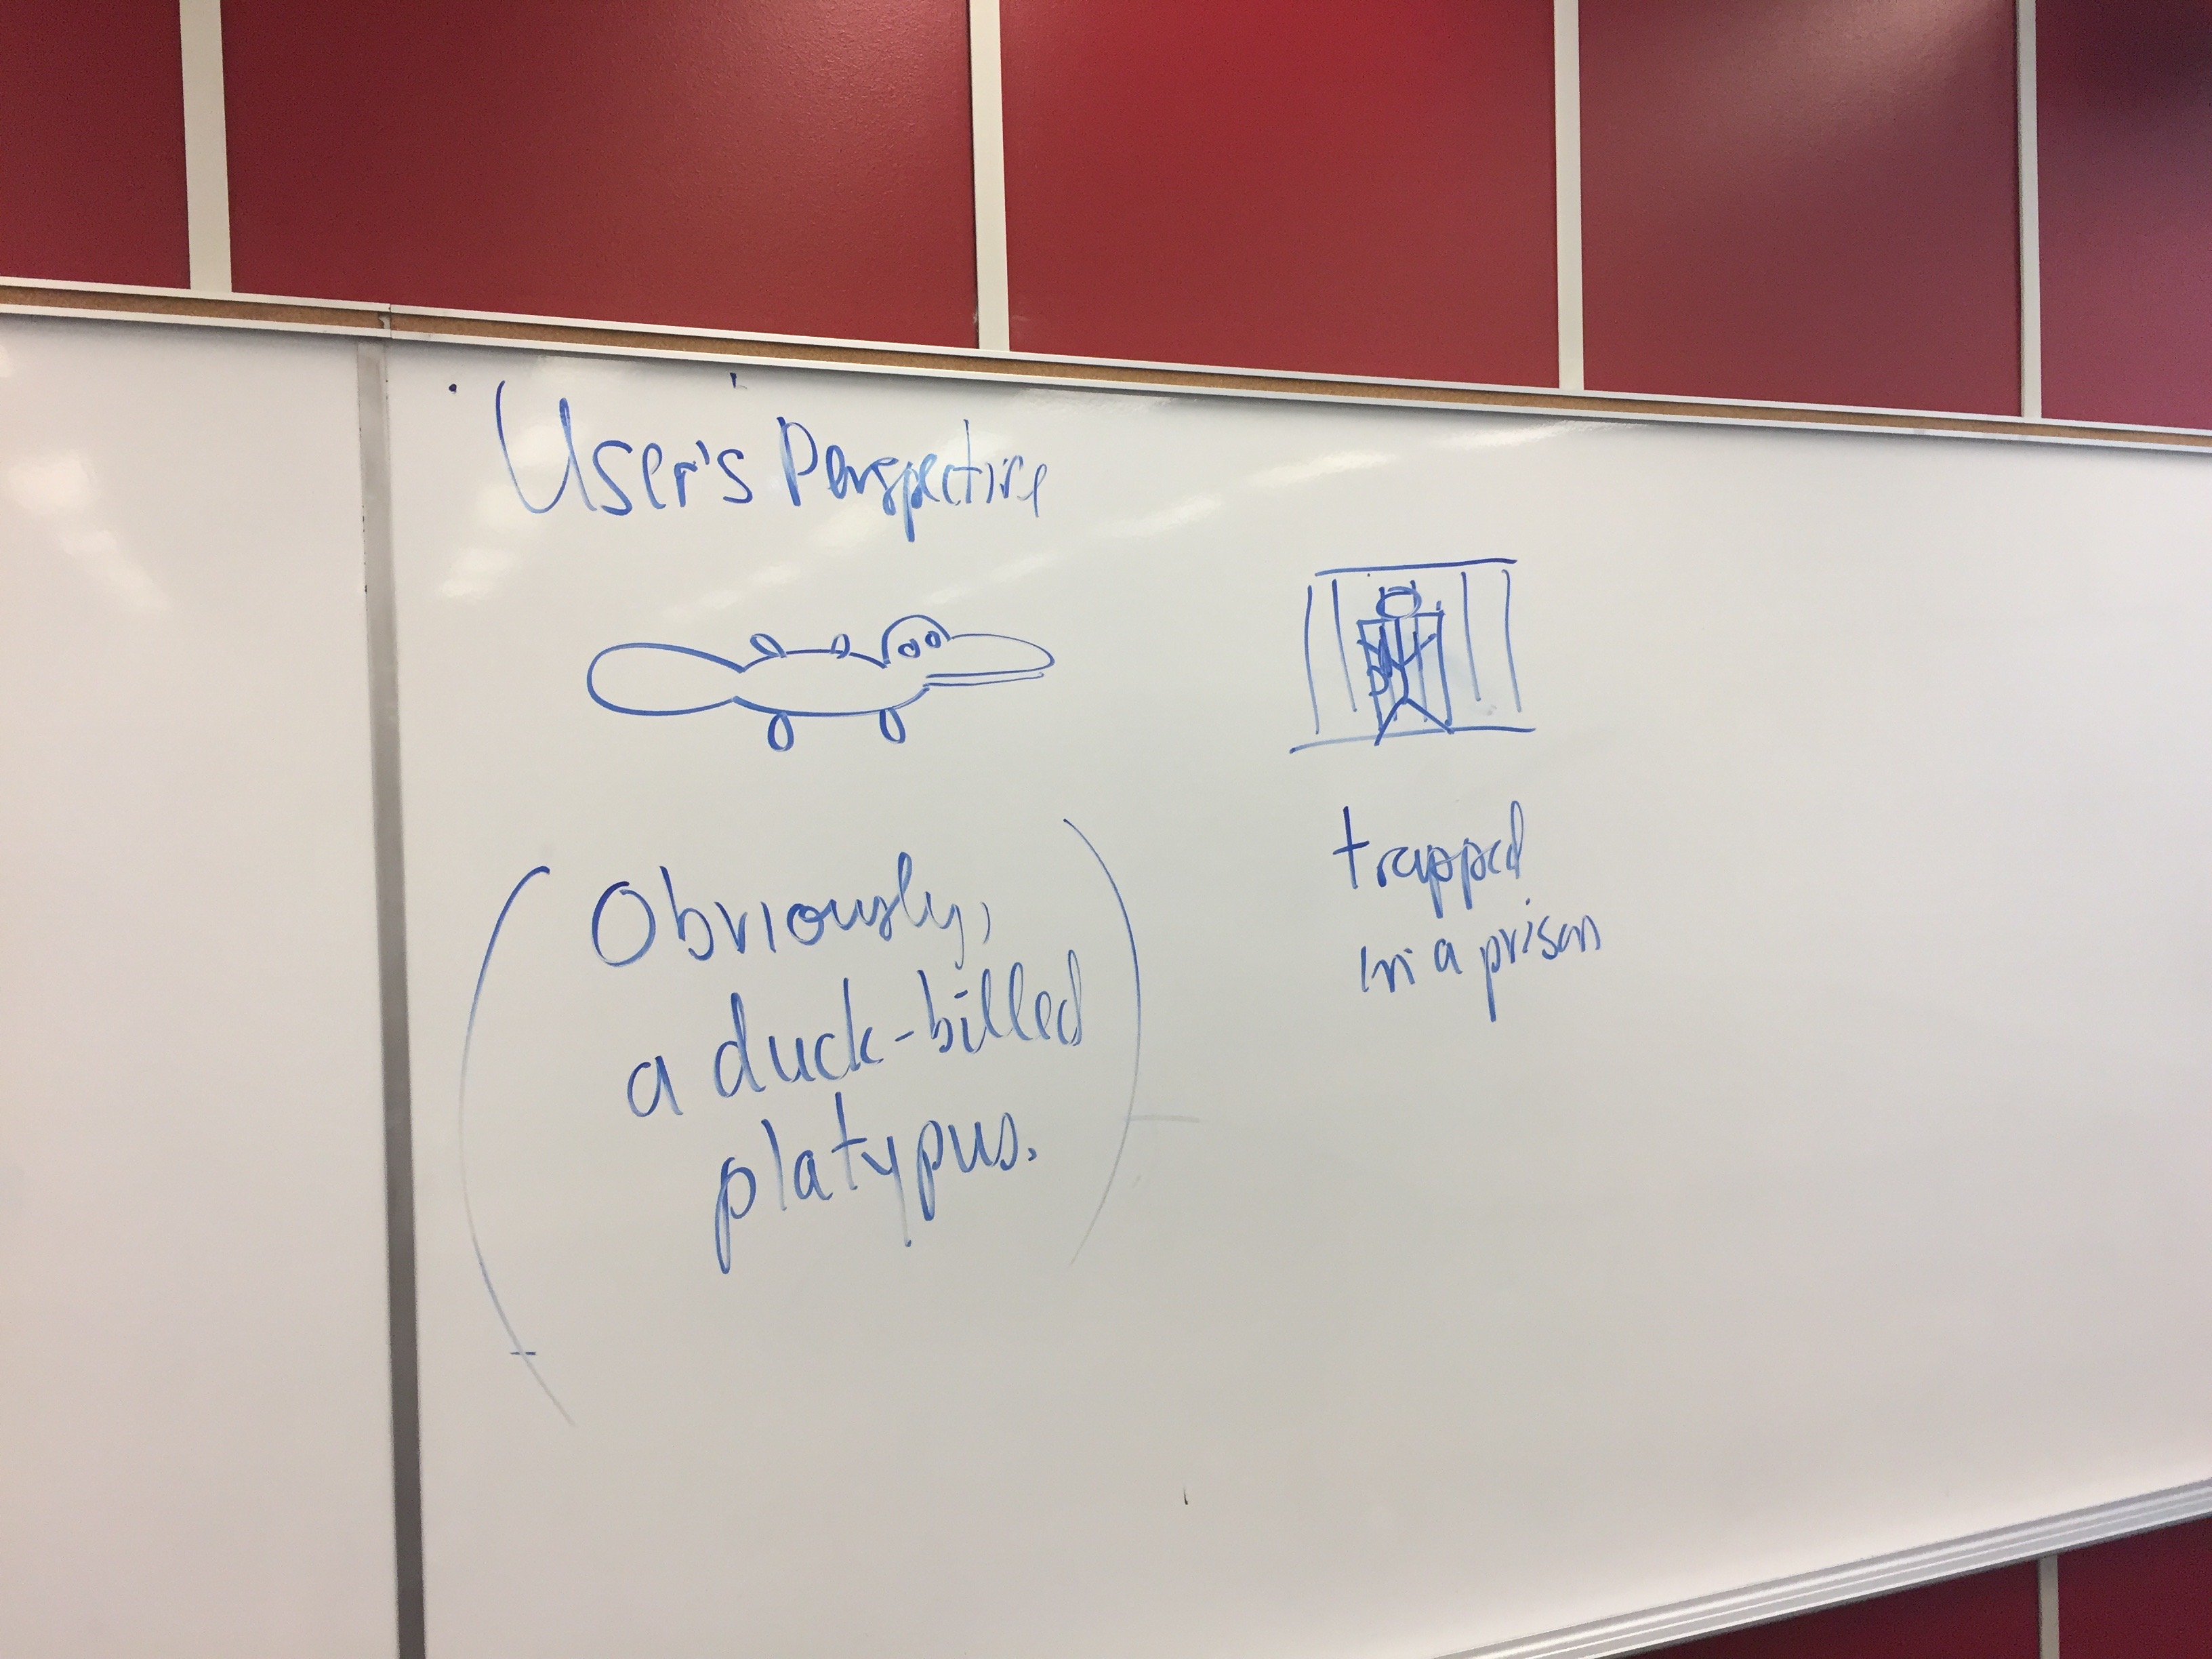 User's Perspective
Obviously,
a duck-billed
platypus.
trapped
in a prison